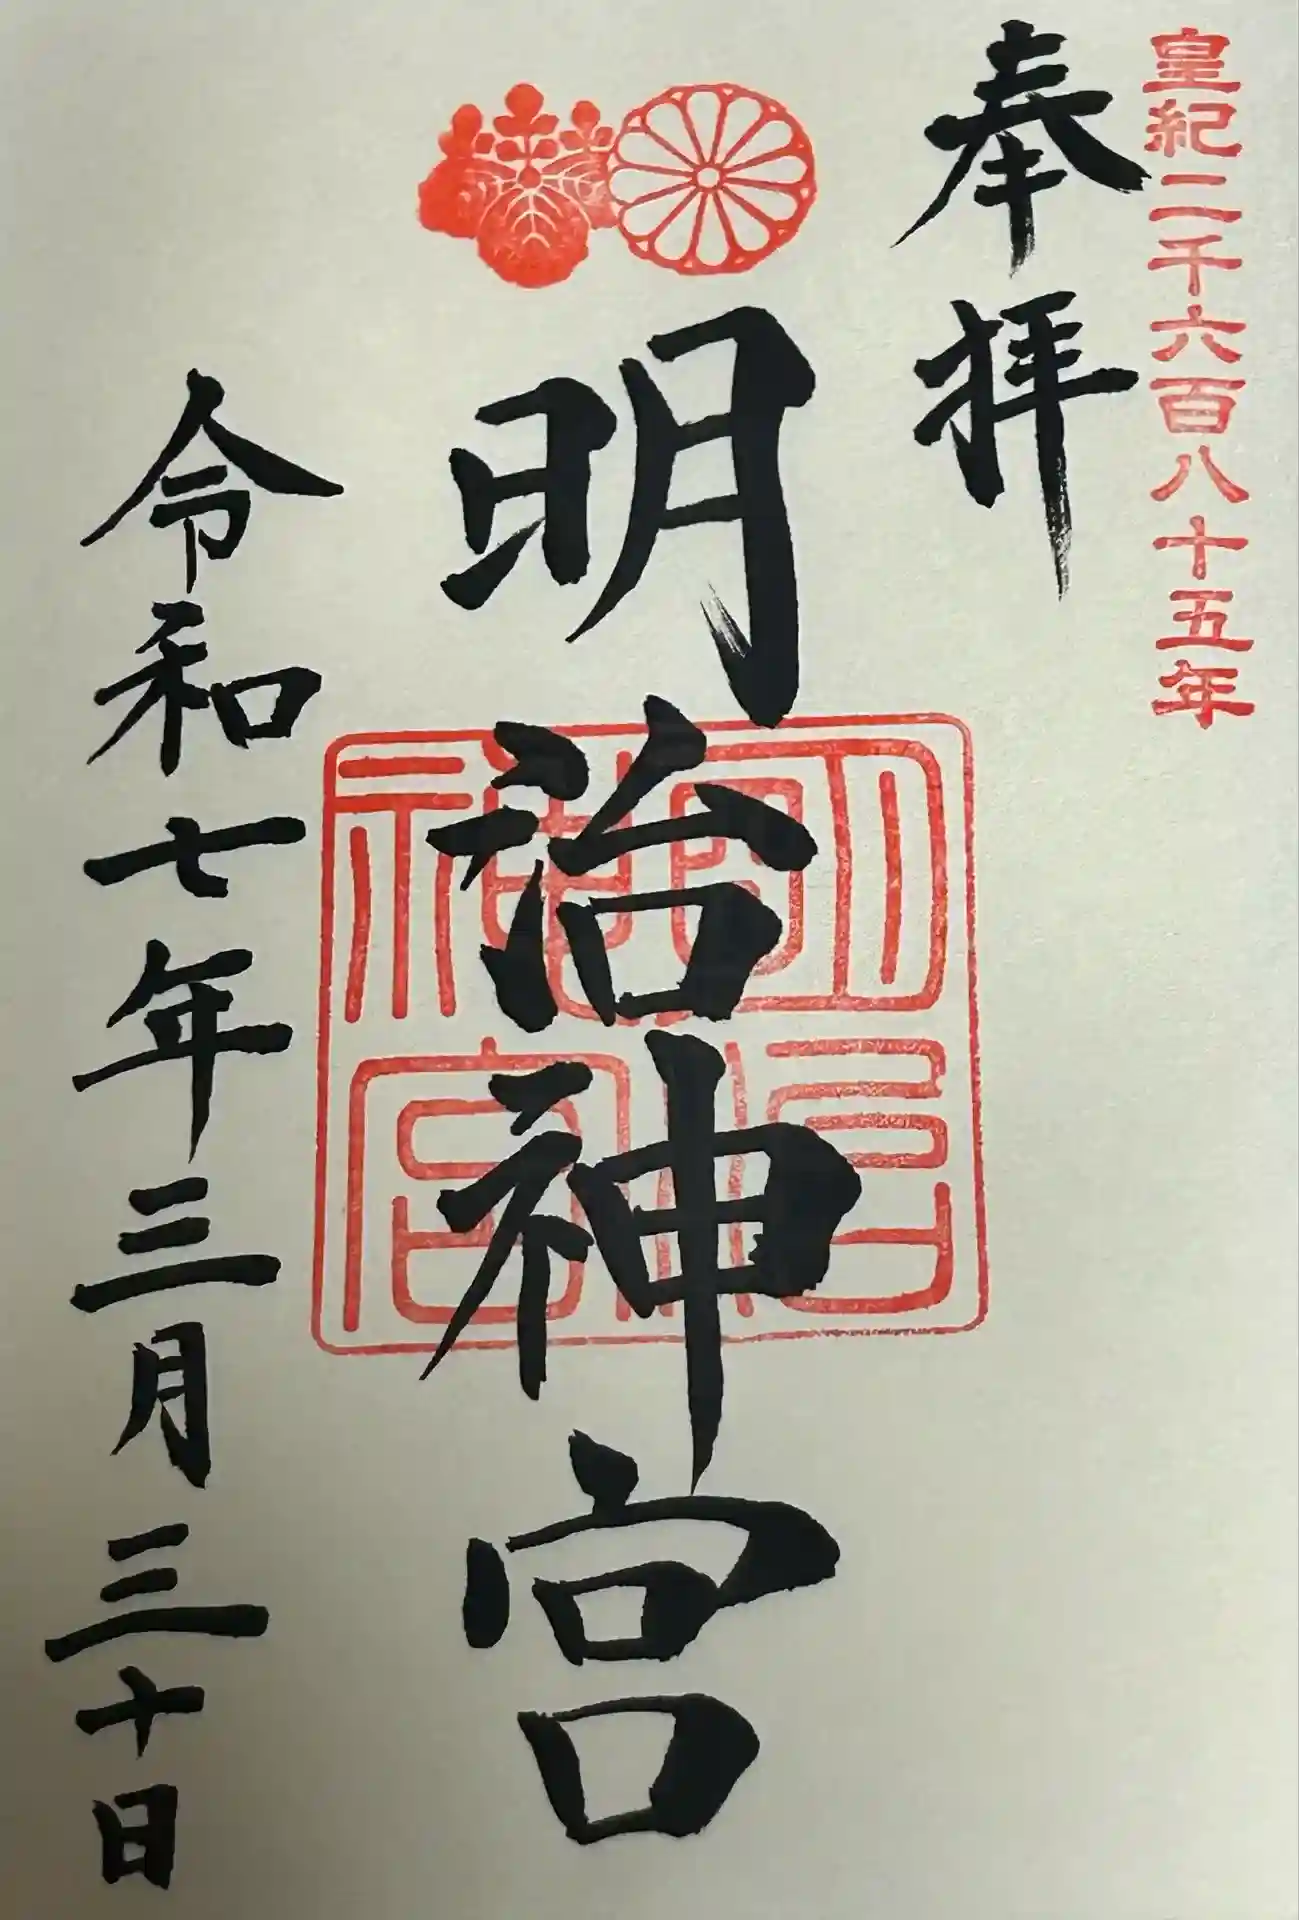 皇紀二千六百八十五年
奉拝
明治神宮
明治神宮
令和七年三月三十日